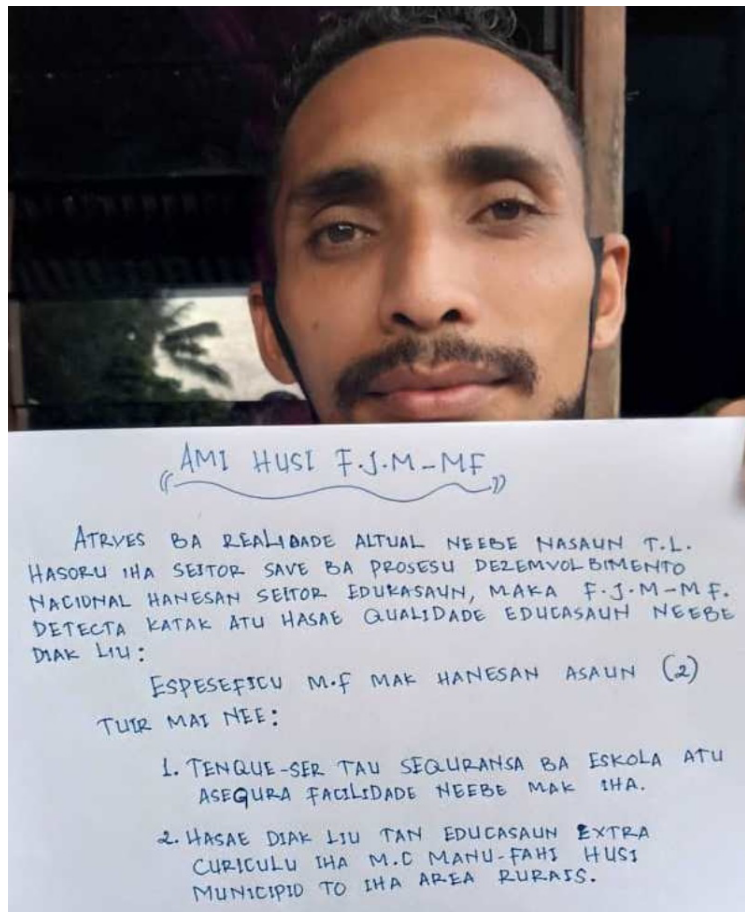 AMI HUSI F.J.M-MF
ATRVES BA REALIDADE ALTUAL NEEBE NASAUN T.L.
HASORU IHA SEITOR SAVE BA PROSESU DEZEMVOLBIMENTO
NACIONAL HANESAN SEITOR EDUKASAUN, MAKA F.J.M-MF.
DETECTA KATAK ATU HASAE QUALIDADE EDUCASAUN NEEBE
DIAK LIU:
ESPESEFICU M.F MAK HANESAN ASAUN (2)
TUIR MAI NEE:
1. TENQUE-SER TAU SEQURANSA BA ESKOLA ATU
ASEGURA FACILIDADE NEEBE MAK IHA.
2. HASAE DIAK LIU TAN EDUCASAUN EXTRA
CURICULU IHA M.C MANU-FAHI HUSI
MUNICIPIO TO IHA AREA RURAIS.